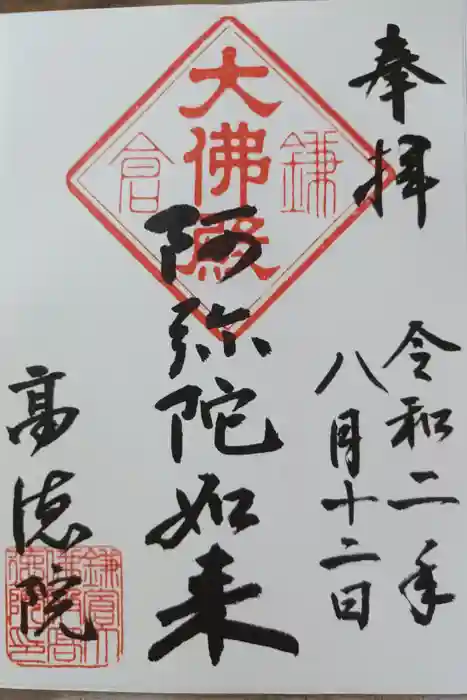 奉拝
令和二年
八月十二日
鎌倉
大佛殿
阿弥陀如来
高徳院